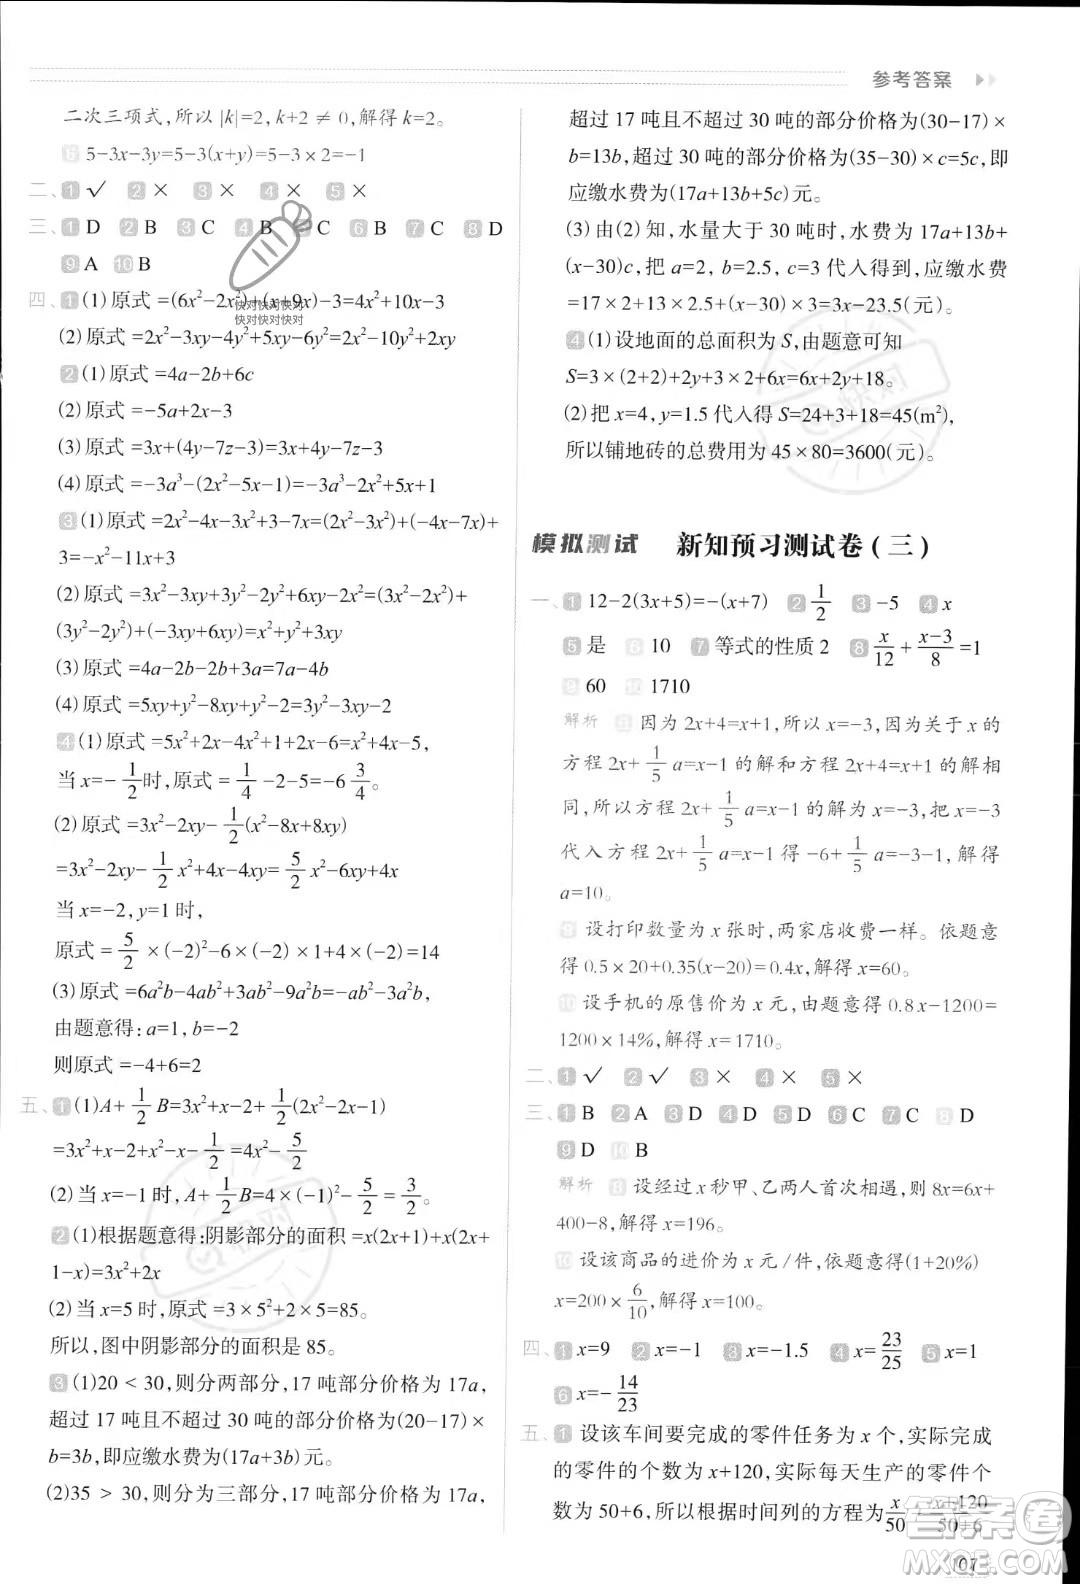 参考答案
二次三项式,所以 |k|=2, k+2 ≠ 0,解得 k=2。
6 5-3x-3y=5-3(x+y)=5-3×2=-1
二、1 ✓ 2 × 3 × 4 × 5 ×
三、1 D 2 B 3 C 4 B 5 C 6 B 7 C 8 D
9 A 10 B
四、1 (1)原式 =(6x²-2x²)+(x+9x)-3=4x²+10x-3
(2)原式 =2x²-3xy-4y²+5xy-6y²=2x²+2xy
2 (1)原式 =4a-2b+6c
(2)原式 =-5a+2x-3
(3)原式 =3x+(4y-7z-3)=3x+4y-7z-3
(4)原式 =-3a³-(2x-5x-1)=-3a³-2x+5x+1
3 (1)原式 =2x²-4x-3x²+3-7x=(2x²-3x²)+(-4x-7x)+
3=-x²-11x+3
(2)原式 =3x²-3xy+3y²-2x²-3xy+2y²=(3x²-2x²)+
(3y²-2y²)+(-3xy+6xy)=x²+y²+3xy
(3)原式 =4a-2b-2b+3a=7a-4b
(4)原式 =5xy+y²-8xy+y²-2=2y²-3xy-2
4 (1)原式 =5x²+2x-4x²-6x-5=x²+4x-5,
当 x=-1/2时,原式 =1/4-2-5=-6 3/4。
(2)原式 =3x²-2xy-1/2(x²-8x+8xy)
=3x²-2xy-1/2 x²+4x-4xy=5/2 x²-6xy+4x
当 x=-2, y=1 时,
原式 =5/2×(-2)²-6×(-2)×1+4×(-2)=14
(3)原式 =6a²b-4ab²+3ab²-9a²b=-ab²-3a²b
由题意得:a=1, b=-2
则原式 =-4+6=2
五、1 (1)A+1/2 B=3x²+x-2+1/2(2x²-2x-1)
=3x²+x-2+x²-x-1/2=4x²-5/2
(2)当 x=-1 时, A+1/2 B=4×(-1)²-5/2=3/2。
2 (1)根据题意得:阴影部分的面积 =x(2x+1)+x(2x+
1-x)=3x²+2x
(2)当 x=5 时,原式 =3×5²+2×5=85。
所以,图中阴影部分的面积是 85。
3 (1)20 < 30,则分两部分,17 吨部分价格为 17a,
超过 17 吨且不超过 30 吨的部分价格为(20-17)×
b=3b,即应缴水费为(17a+3b)元。
(2)35 > 30,则分为三部分,17 吨部分价格为 17a,
超过 17 吨且不超过 30 吨的部分价格为(30-17)×
b=13b,超过 30 吨的部分价格为(35-30)×c=5c,即
应缴水费为(17a+13b+5c)元。
(3)由(2)知,水量大于 30 吨时,水费为 17a+13b+
(x-30)c,把 a=2、b=2.5、c=3 代入得到,应缴水费
=17×2+13×2.5+(x-30)×3=3x-23.5(元)。
4 (1)设地面的总面积为 S,由题意可知
S=3×(2+2)+2y+3×2+6x=6x+2y+18。
(2)把 x=4, y=1.5 代入得 S=24+3+18=45(m²),
所以铺地砖的总费用为 45×80=3600(元)。
模拟测试 新知预习测试卷(三)
一、1 12-2(3x+5)=-(x+7) 2 1/2 3 -5 4 x
5 是 6 10 7 等式的性质 2 8 x/12+(x-3)/8=1
9 60 10 1710
解析 6 因为 2x+4=x+1,所以 x=-3,因为关于 x 的
方程 2x+1/5 a=x-1 的解和方程 2x+4=x+1 的解相
同,所以方程 2x+1/5 a=x-1 的解为 x=-3,把 x=-3
代入方程 2x+1/5 a=x-1 得 -6+1/5 a=-3-1,解得
a=10。
9 设打印数量为 x 张时,两家店收费一样。依题意
得 0.5×20+0.35(x-20)=0.4x,解得 x=60。
10 设手机的原售价为 x 元,由题意得 0.8x-1200=
1200×14%,解得 x=1710。
二、1 ✓ 2 ✓ 3 × 4 × 5 ×
三、1 B 2 A 3 D 4 D 5 D 6 C 7 C 8 D
9 D 10 B
解析 8 设经过 x 秒甲、乙两人首次相遇,则 8x=6x+
400-8,解得 x=196。
10 设该商品的进价为 x 元/件,依题意得(1+20%)
x=200×6/10,解得 x=100。
四、1 x=9 2 x=-1 3 x=-1.5 4 x=23/25 5 x=1
6 x=-14/23
五、1 设该车间要完成的零件任务为 x 个,实际完成
的零件的个数为 x+120,实际每天生产的零件个
数为 50+6,所以根据时间列的方程为x/50-(x+120)/(50+6)
107
快对快对快对
快对快对快对
快对
快对
答案圈
MXQE.COM